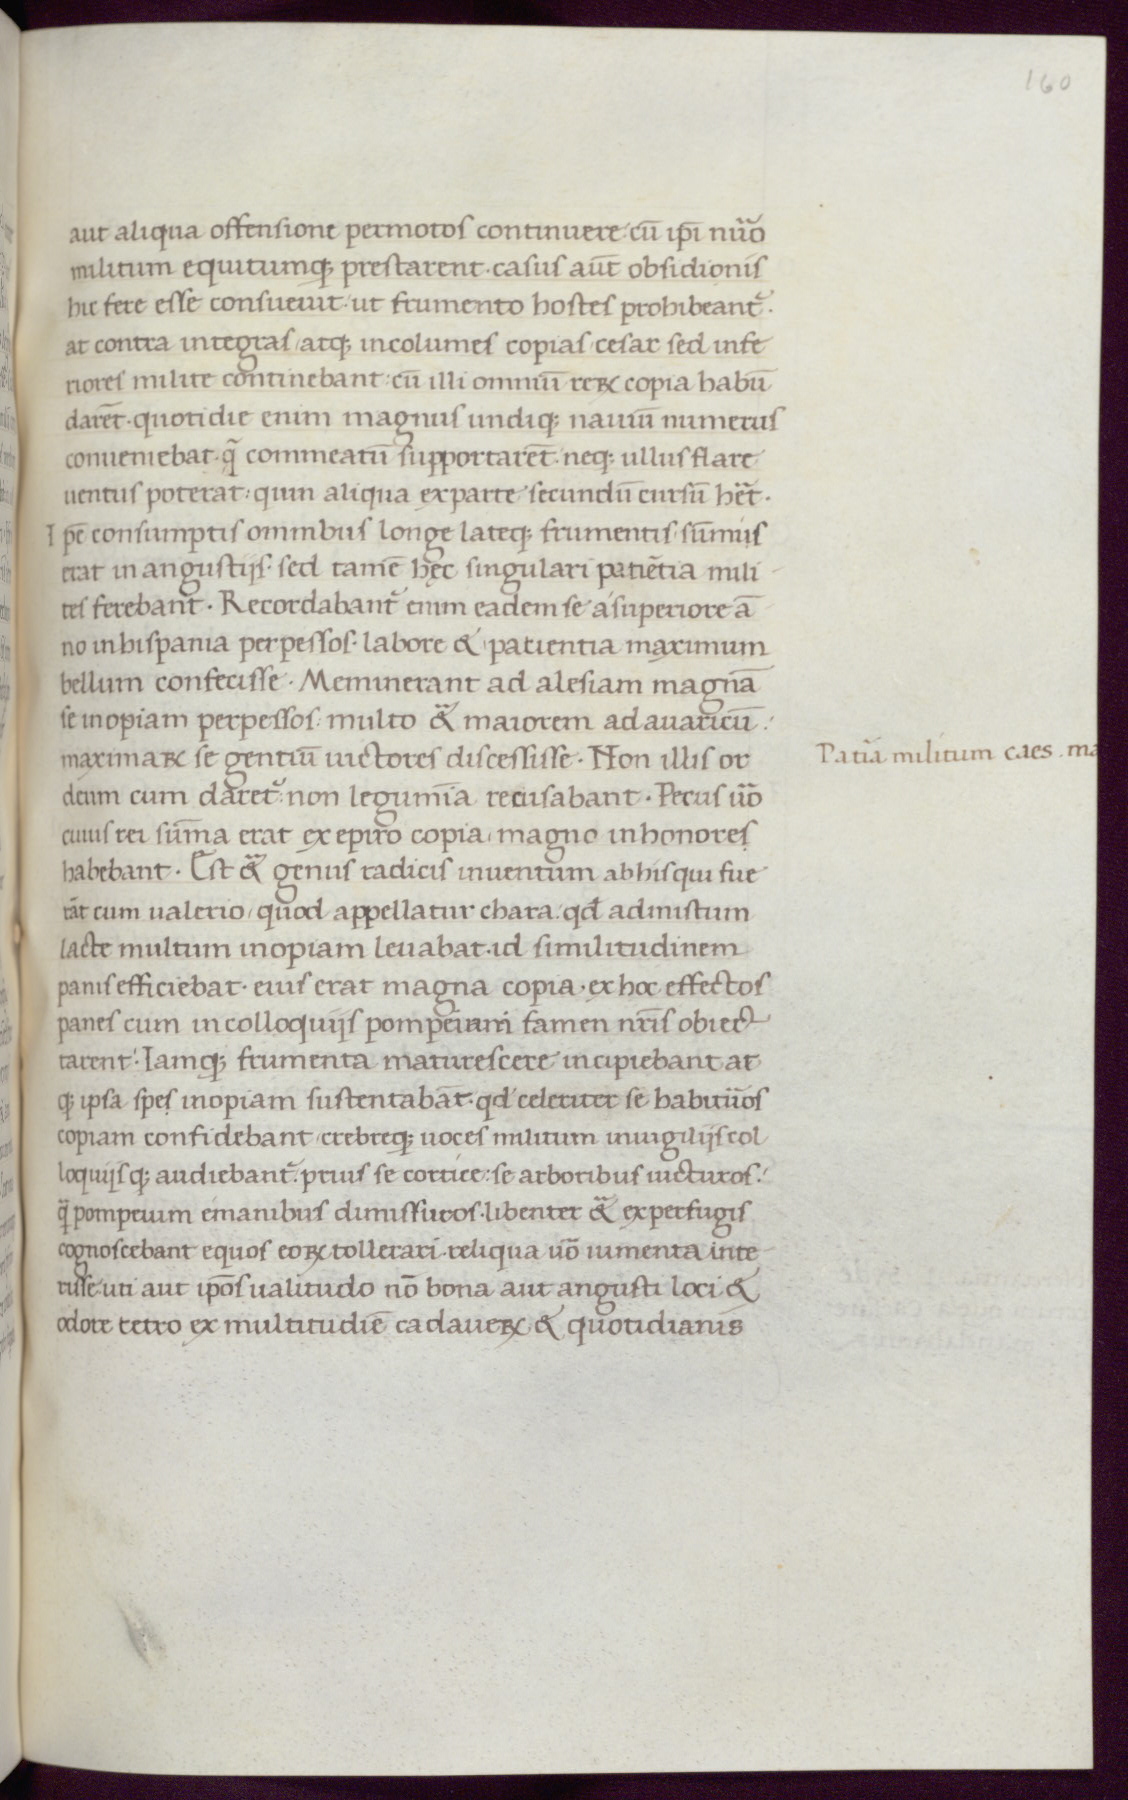 160
aut aliqua offensione permotos continuere·cū ip̄i nũo
militum equitumq; prestarent·casus aūt obsidionis
hic fere esse consueuit·ut frumento hostes prohibeant᷑·
at contra integras/atq; incolumes copias/cesar sed infe
riores milite continebant:cū illi omniū reꝝ copia habū
darēt·quotidie enim magnus undiq; nauiū numerus
conueniebat·q̄ commeatū supportarēt·neq; ullus flare
uentus poterat:quin aliqua ex parte secundū cursū hr̄et·
Ipē consumptis omnibus longe lateq; frumentis/sūmis
erat in angustijs·sed tamē hęc singulari patiētia mili-
tes ferebant·Recordabant᷑ enim eadem se a superiore ā
no in hispania perpessos·labore & patientia maximum
bellum confecisse·Meminerant ad alesiam magnā
se inopiam perpessos:multo &̃ maiorem ad auaricū:
maximaꝝ se gentiū uictores discessisse·Non illis or
deum cum daret᷑:non legumīa recusabant·Pecus ũo
cuius rei sūma erat ex epiro copia/magno in honores
habebant·Est &̃ genus radicis inuentum ab his qui fue
rāt cum ualerio/quod appellatur chara:qd̄ admistum
lacte multum inopiam leuabat·id similitudinem
panis efficiebat·eius erat magna copia·ex hoc effectos
panes cum in colloquijs pompeiani famen nr̄is obiec
tarent·Iamq; frumenta maturescere incipiebant at
q; ipsa spes inopiam sustentabāt·qd̄ celeriter se habituros
copiam confidebant/crebreq; uoces militum in uigilijs col
loquijsq; audiebant᷑:prius se cortice:se arboribus uicturos:
q̄ pompeium emanibus dimissuros·libenter &̃ ex perfugis
cognoscebant equos eoꝝ tollerari·reliqua ũo iumenta inte-
risse·uti aut ip̄os ualitudo nō bona aut angusti loci &
odore tetro ex multitudiē cadaueꝝ & quotidianis
Patīa militum caes. ma